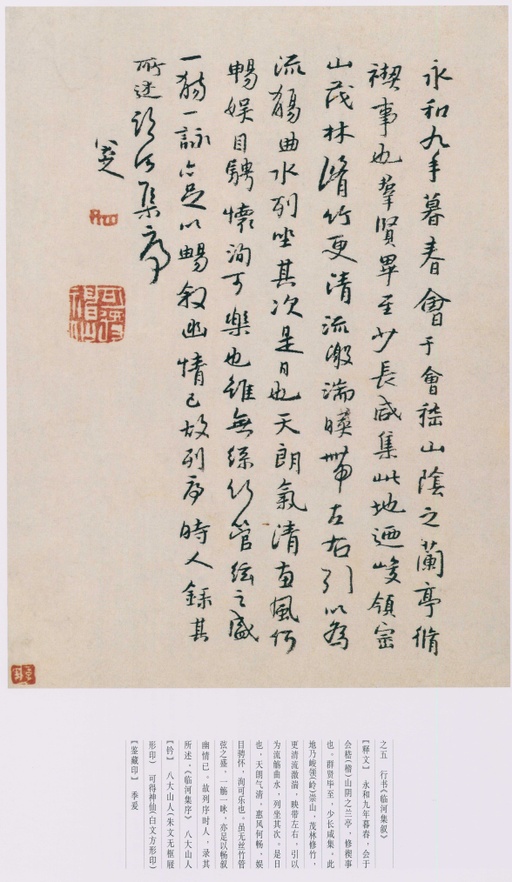 永和九年暮春會于會嵇山陰之蘭亭脩
禊事也羣賢畢至少長咸集此地迺峻領崇
山茂林脩竹更清流激湍暎帶左右引以為
流觴曲水列坐其次是日也天朗氣清惠風何
暢娛目騁懷洵可樂也雖無絲竹管絃之盛
一觴一詠亦足以暢敘幽情已故列序時人錄其
所述臨河集序
八大山人
可得神仙
之五 行书《临河集叙》
【释文】 永和九年暮春，会于
会嵇(稽)山阴之兰亭，修禊事
也。群贤毕至，少长咸集，此
地乃峻领(岭)崇山，茂林修竹，
更清流激湍，映带左右，引以
为流觞曲水，列坐其次。是日
也，天朗气清，惠风何畅，娱
目骋怀，洵可乐也。虽无丝竹管
弦之盛，一觞一咏，亦足以畅叙
幽情已。故列序时人，录其
所述。《临河集序》 八大山人
【钤】 八大山人(朱文无框屐
形印) 可得神仙(白文方形印)
【鉴藏印】 季爰